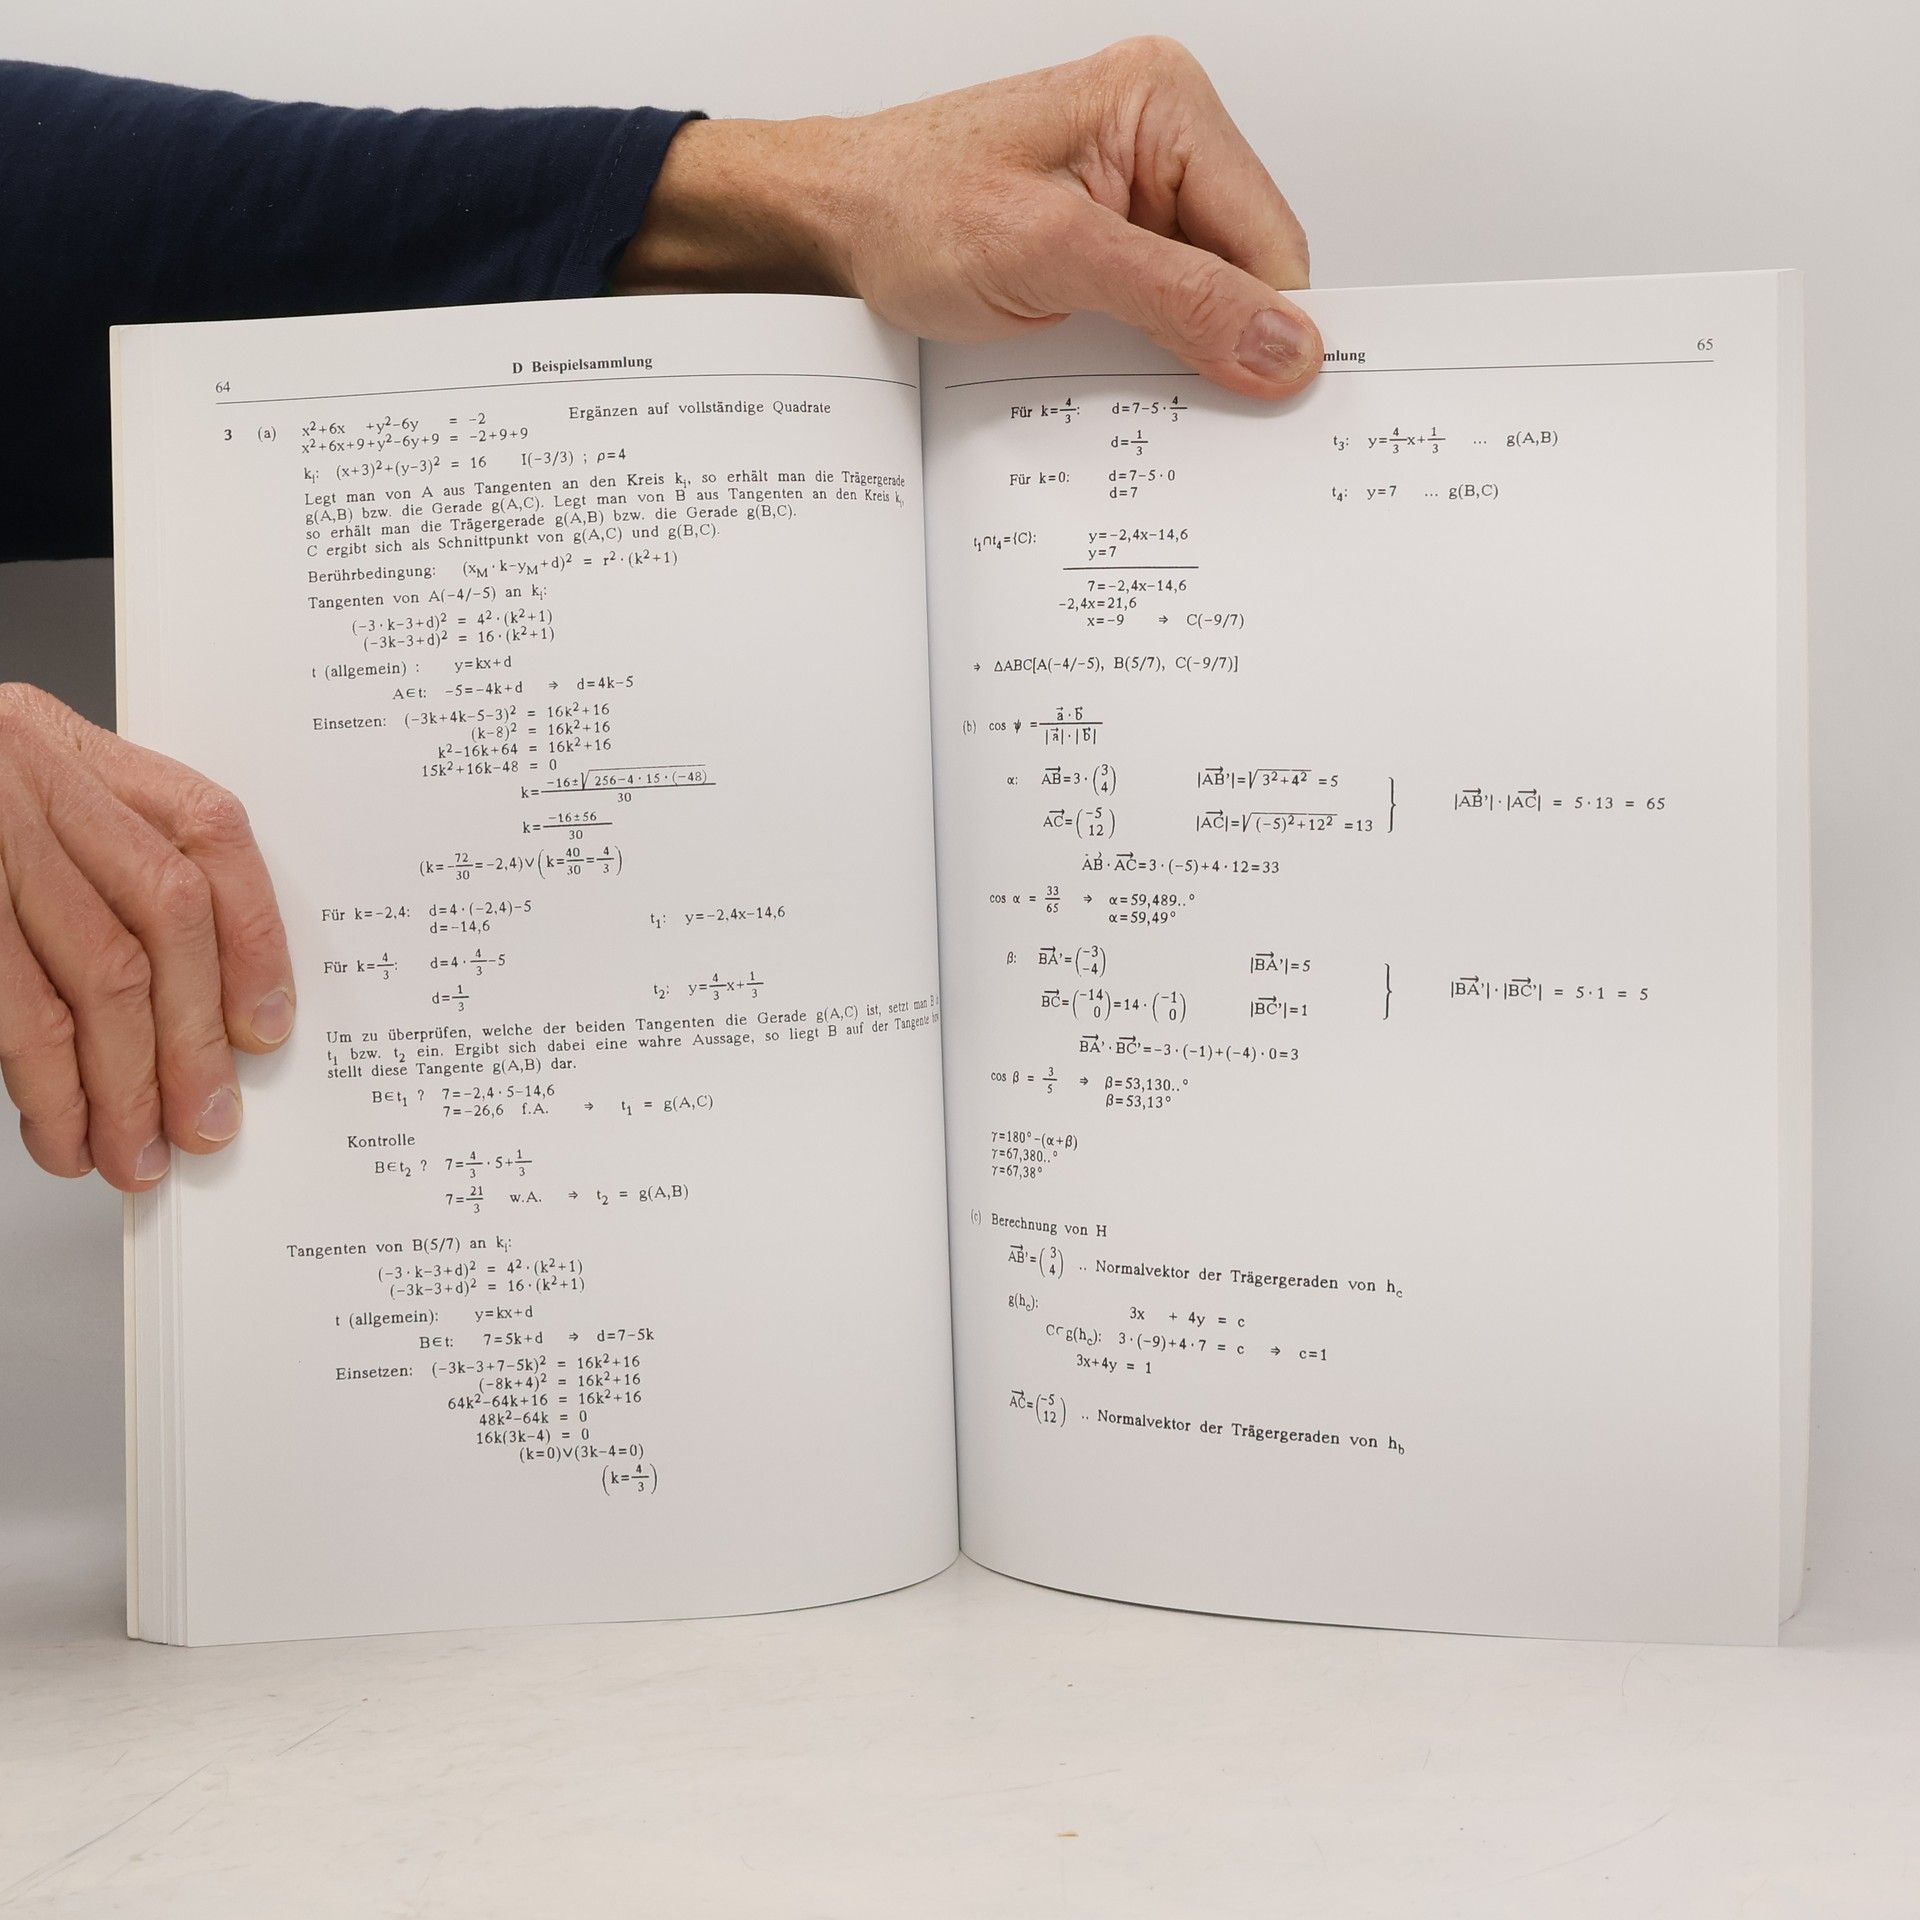 64
D Beispielsammlung
3 (a) x²+6x +y²-6y = -2 Ergänzen auf vollständige Quadrate
x²+6x+9+y²-6y+9 = -2+9+9
kᵢ: (x+3)²+(y-3)² = 16 I(-3/3) ; ρ=4
Legt man von A aus Tangenten an den Kreis kᵢ, so erhält man die Trägergerade
g(A,B) bzw. die Gerade g(A,C). Legt man von B aus Tangenten an den Kreis kᵢ,
so erhält man die Trägergerade g(A,B) bzw. die Gerade g(B,C).
C ergibt sich als Schnittpunkt von g(A,C) und g(B,C).
Berührbedingung: (x_M·k-y_M+d)² = r²·(k²+1)
Tangenten von A(-4/-5) an kᵢ:
(-3·k-3+d)² = 4²·(k²+1)
(-3k-3+d)² = 16·(k²+1)
t (allgemein) : y=kx+d
A∈t: -5=-4k+d ⇒ d=4k-5
Einsetzen: (-3k+4k-5-3)² = 16k²+16
(k-8)² = 16k²+16
k²-16k+64 = 16k²+16
15k²+16k-48 = 0
k=(-16±√(256-4·15·(-48)))/30
k=(-16±56)/30
(k=-72/30=-2,4)∨(k=40/30=4/3)
Für k=-2,4: d=4·(-2,4)-5
d=-14,6 t₁: y=-2,4x-14,6
Für k=4/3: d=4·4/3-5
d=1/3 t₂: y=4/3x+1/3
Um zu überprüfen, welche der beiden Tangenten die Gerade g(A,C) ist, setzt man B
t₁ bzw. t₂ ein. Ergibt sich dabei eine wahre Aussage, so liegt B auf der Tangente
stellt diese Tangente g(A,B) dar.
B∈t₁ ? 7=-2,4·5-14,6
7=-26,6 f.A. ⇒ t₁ = g(A,C)
Kontrolle
B∈t₂ ? 7=4/3·5+1/3
7=21/3 w.A. ⇒ t₂ = g(A,B)
Tangenten von B(5/7) an kᵢ:
(-3·k-3+d)² = 4²·(k²+1)
(-3k-3+d)² = 16·(k²+1)
t (allgemein): y=kx+d
B∈t: 7=5k+d ⇒ d=7-5k
Einsetzen: (-3k-3+7-5k)² = 16k²+16
(-8k+4)² = 16k²+16
64k²-64k+16 = 16k²+16
48k²-64k = 0
16k(3k-4) = 0
(k=0)∨(3k-4=0)
(k=4/3)
mlung
65
Für k=4/3: d=7-5·4/3
d=1/3 t₃: y=4/3x+1/3 ... g(A,B)
Für k=0: d=7-5·0
d=7 t₄: y=7 ... g(B,C)
t₁∩t₄={C}: y=-2,4x-14,6
y=7
7=-2,4x-14,6
-2,4x=21,6
x=-9 ⇒ C(-9/7)
⇒ ΔABC[A(-4/-5), B(5/7), C(-9/7)]
(b) cos ψ = (a⃗·b⃗)/(|a⃗|·|b⃗|)
α: AB⃗=3·(3 4) |AB⃗'|=√(3²+4²) =5
AC⃗=(-5 12) |AC⃗|=√((-5)²+12²) =13 } |AB⃗'|·|AC⃗| = 5·13 = 65
AB⃗·AC⃗=3·(-5)+4·12=33
cos α = 33/65 ⇒ α=59,489..°
α=59,49°
β: BA⃗'=(-3 -4) |BA⃗'|=5
BC⃗=(-14 0)=14·(-1 0) |BC⃗'|=1 } |BA⃗'|·|BC⃗'| = 5·1 = 5
BA⃗'·BC⃗'=-3·(-1)+(-4)·0=3
cos β = 3/5 ⇒ β=53,130..°
β=53,13°
γ=180°-(α+β)
γ=67,380..°
γ=67,38°
(c) Berechnung von H
AB⃗'=(3 4) .. Normalvektor der Trägergeraden von h_c
g(h_c): 3x + 4y = c
C g(h_c): 3·(-9)+4·7 = c ⇒ c=1
3x+4y = 1
AC⃗=(-5 12) .. Normalvektor der Trägergeraden von h_b